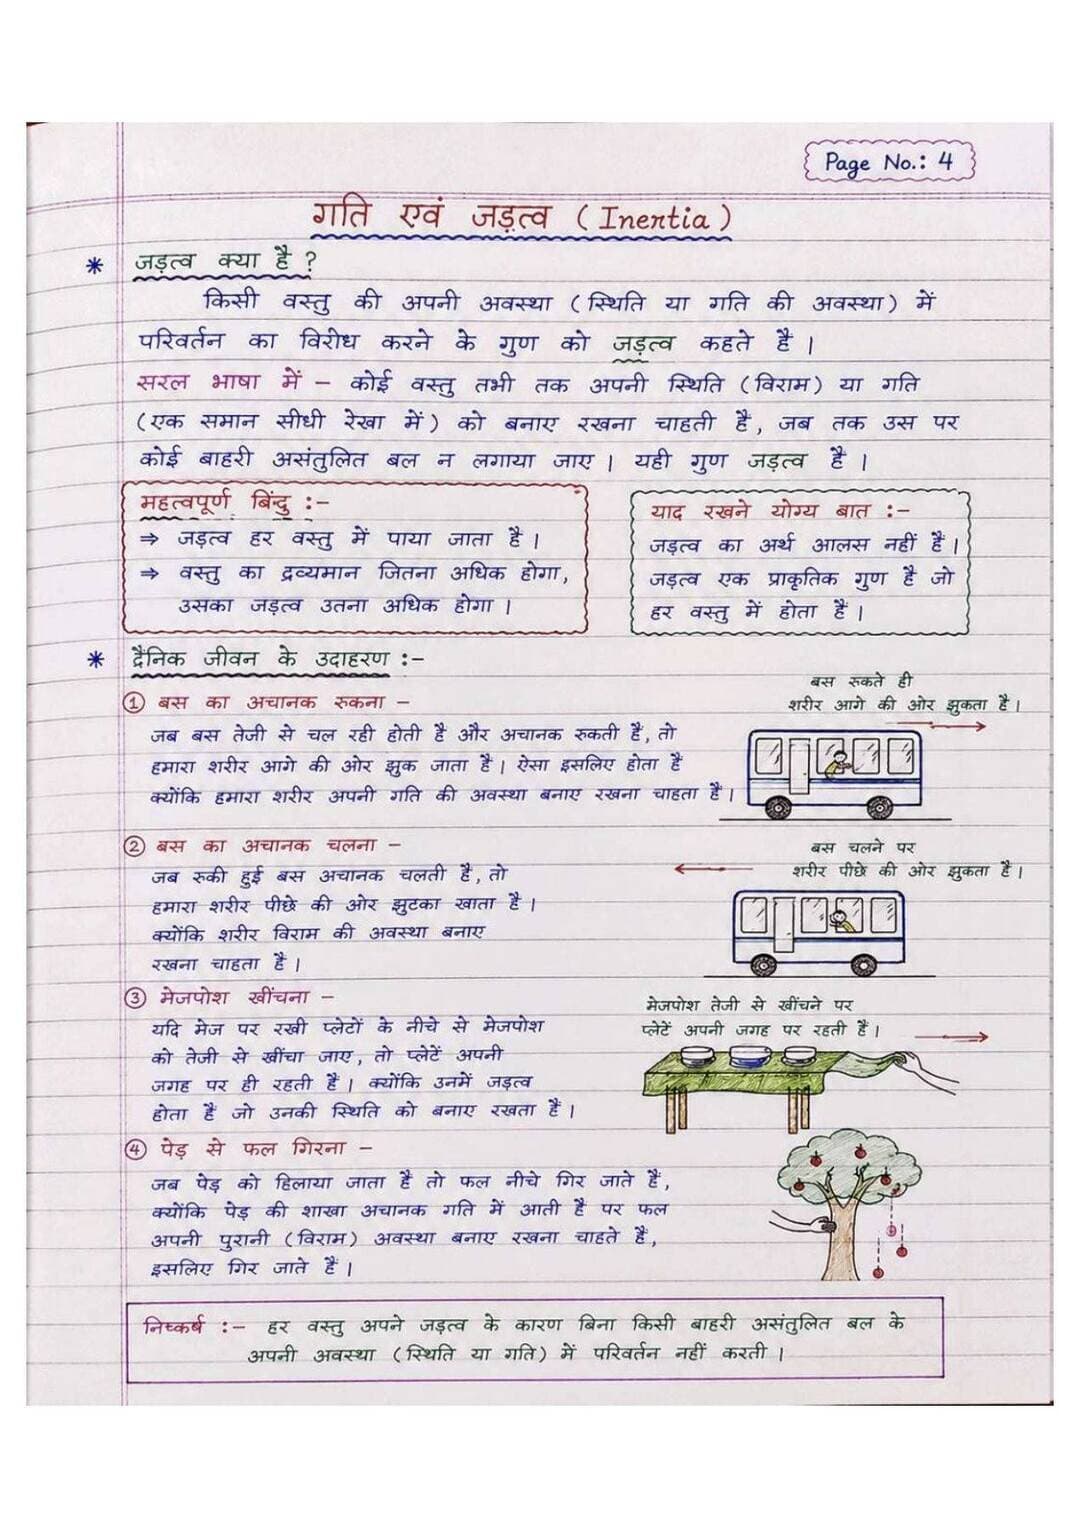 Page No.: 4
गति एवं जड़त्व (Inertia)
* जड़त्व क्या है ?
किसी वस्तु की अपनी अवस्था (स्थिति या गति की अवस्था) में
परिवर्तन का विरोध करने के गुण को जड़त्व कहते है ।
सरल भाषा में - कोई वस्तु तभी तक अपनी स्थिति (विराम) या गति
(एक समान सीधी रेखा में) को बनाए रखना चाहती है, जब तक उस पर
कोई बाहरी असंतुलित बल न लगाया जाए । यही गुण जड़त्व है ।
महत्वपूर्ण बिंन्दु :-
⇒ जड़त्व हर वस्तु में पाया जाता है ।
⇒ वस्तु का द्रव्यमान जितना अधिक होगा,
उसका जड़त्व उतना अधिक होगा ।
याद रखने योग्य बात :-
जड़त्व का अर्थ आलस नहीं है ।
जड़त्व एक प्राकृतिक गुण है जो
हर वस्तु में होता है ।
* दैनिक जीवन के उदाहरण :-
① बस का अचानक रुकना -
जब बस तेजी से चल रही होती है और अचानक रुकती है, तो
हमारा शरीर आगे की ओर झुक जाता है । ऐसा इसलिए होता है
क्योंकि हमारा शरीर अपनी गति की अवस्था बनाए रखना चाहता है ।
बस रुकते ही
शरीर आगे की ओर झुकता है ।
② बस का अचानक चलना -
जब रुकी हुई बस अचानक चलती है, तो
हमारा शरीर पीछे की ओर झुटका खाता है ।
क्योंकि शरीर विराम की अवस्था बनाए
रखना चाहता है ।
बस चलने पर
शरीर पीछे की ओर झुकता है ।
③ मेजपोश खींचना -
यदि मेज पर रखी प्लेटों के नीचे से मेजपोश
को तेजी से खींचा जाए, तो प्लेटें अपनी
जगह पर ही रहती है । क्योंकि उनमें जड़त्व
होता है जो उनकी स्थिति को बनाए रखता है ।
मेजपोश तेजी से खींचने पर
प्लेटें अपनी जगह पर रहती है ।
④ पेड़ से फल गिरना -
जब पेड़ को हिलाया जाता है तो फल नीचे गिर जाते है,
क्योंकि पेड़ की शाखा अचानक गति में आती है पर फल
अपनी पुरानी (विराम) अवस्था बनाए रखना चाहते है,
इसलिए गिर जाते है ।
निष्कर्ष :- हर वस्तु अपने जड़त्व के कारण बिना किसी बाहरी असंतुलित बल के
अपनी अवस्था (स्थिति या गति) में परिवर्तन नहीं करती ।